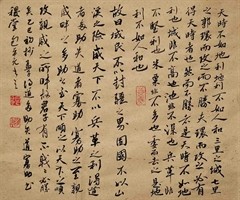 天時不如地利地利不如人和三里之城七里
之郭環而攻之而不勝夫環而攻之必有
得天時者矣然而不勝者是天時不如地
利也城非不高也池非不深也兵革非
不堅利也米粟非不多也委而去之是地
利不如人和也
故曰域民不以封疆之界固國不以山
谿之險威天下不以兵革之利得道
者多助失道者寡助寡助之至親
戚畔之多助之至天下順之以天下之所順
攻親戚之所畔故君子有不戰戰必勝
孟子得道多助失道寡助